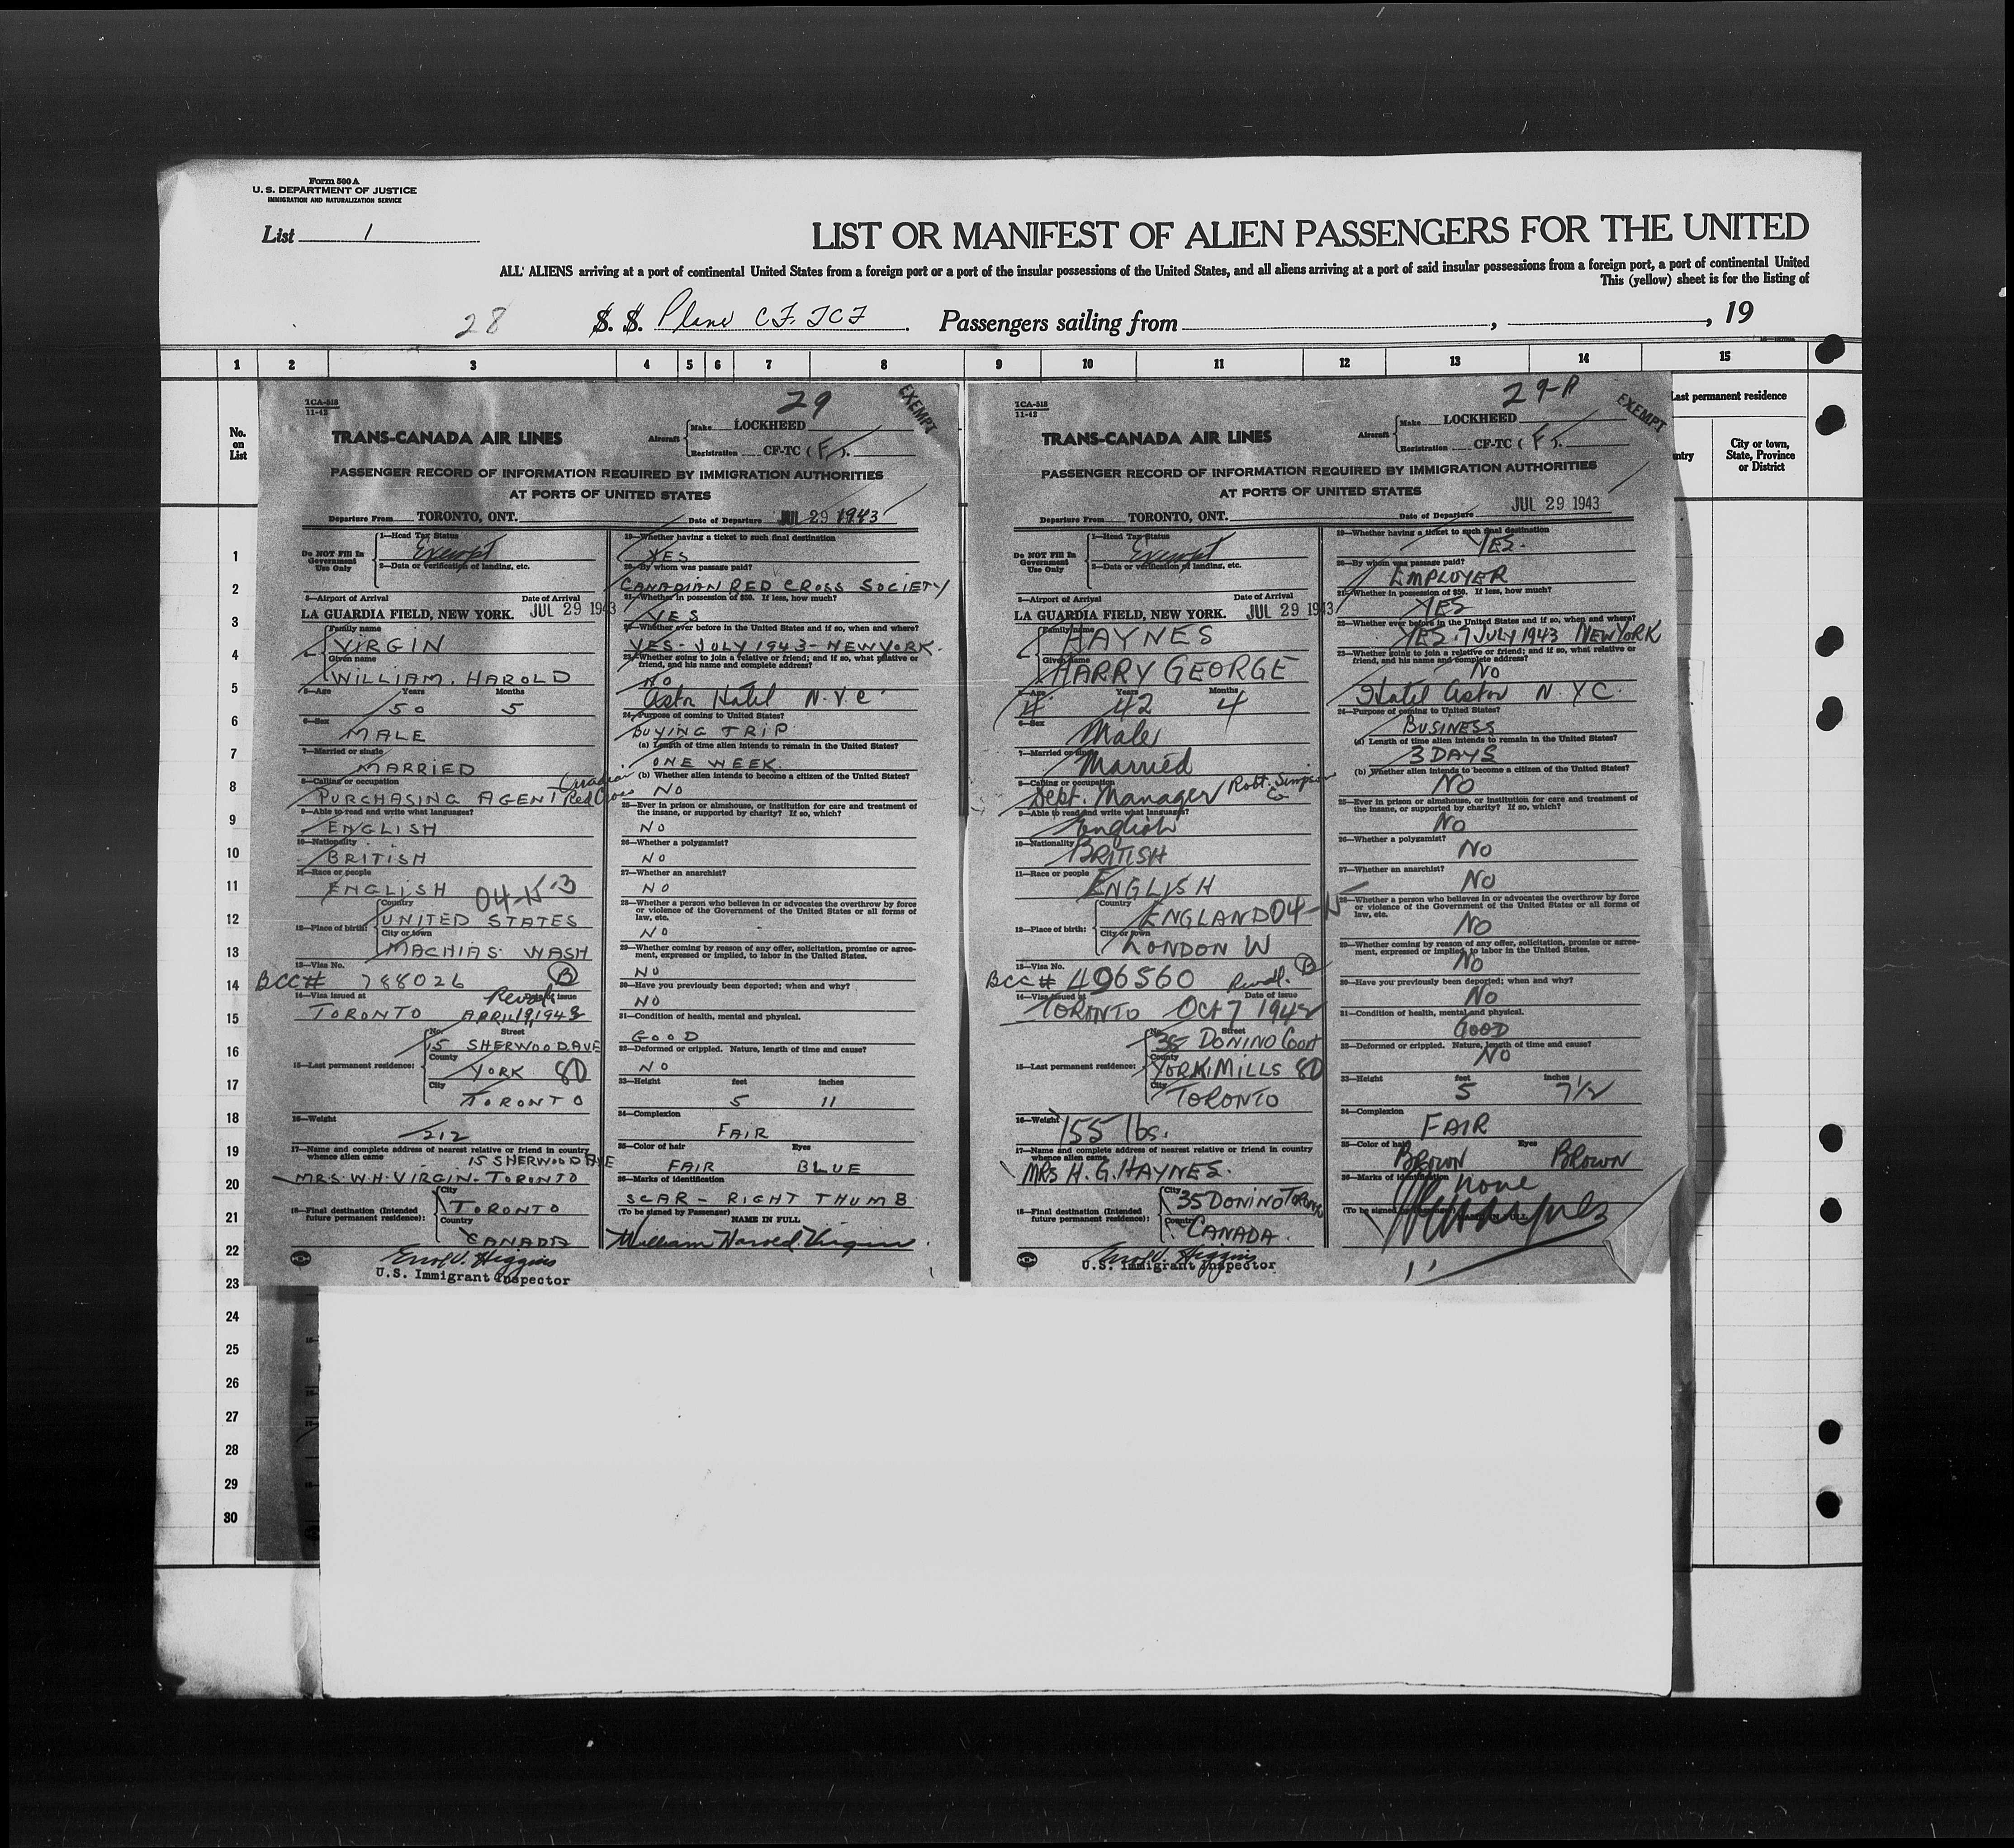 Form 500 A
U. S. DEPARTMENT OF JUSTICE
IMMIGRATION AND NATURALIZATION SERVICE
List 1
LIST OR MANIFEST OF ALIEN PASSENGERS FOR THE UNITED
ALL ALIENS arriving at a port of continental United States from a foreign port or a port of the insular possessions of the United States, and all aliens arriving at a port of said insular possessions from a foreign port, a port of continental United
This (yellow) sheet is for the listing of
28 S. S. Plane CF. TCF. Passengers sailing from , , 19
1 2 3 4 5 6 7 8 9 10 11 12 13 14 15
No. on List
Last permanent residence
ntry
City or town, State, Province or District
1
2
3
4
5
6
7
8
9
10
11
12
13
14
15
16
17
18
19
20
21
22
23
24
25
26
27
28
29
30
TCA-518
11-42
29
EXEMPT
TRANS-CANADA AIR LINES
Aircraft Make LOCKHEED
Registration CF-TC (F).
PASSENGER RECORD OF INFORMATION REQUIRED BY IMMIGRATION AUTHORITIES
AT PORTS OF UNITED STATES
Departure From TORONTO, ONT. Date of Departure JUL 29 1943
Do NOT Fill In Government Use Only
1—Head Tax Status
Exempt
2—Data or verification of landing, etc.
3—Airport of Arrival Date of Arrival
LA GUARDIA FIELD, NEW YORK. JUL 29 1943
4— Family name
VIRGIN
Given name
WILLIAM. HAROLD
5—Age Years Months
50 5
6—Sex
MALE
7—Married or single
MARRIED
8—Calling or occupation
PURCHASING AGENT Canadian Red Cross
9—Able to read and write what languages?
ENGLISH
10—Nationality
BRITISH
11—Race or people
ENGLISH 04-N-3
12—Place of birth: Country
UNITED STATES
City or town
MACHIAS. WASH
13—Visa No.
BCC# 788026 B
14—Visa issued at Date of issue
TORONTO APRIL 19, 1943
15—Last permanent residence: No. Street
15 SHERWOOD AVE
County
YORK 80
City
TORONTO
16—Weight
212
17—Name and complete address of nearest relative or friend in country whence alien came
15 SHERWOOD AVE
MRS. W.H. VIRGIN. TORONTO
18—Final destination (Intended future permanent residence): City
TORONTO
Country
CANADA
Errol V. Higgins
U.S. Immigrant Inspector
19—Whether having a ticket to such final destination
YES
20—By whom was passage paid?
CANADIAN RED CROSS SOCIETY
21—Whether in possession of $50. If less, how much?
YES
22—Whether ever before in the United States and if so, when and where?
YES - JULY 1943 - NEW YORK.
23—Whether going to join a relative or friend; and if so, what relative or friend, and his name and complete address?
NO
Astor Hotel N.Y.C
24—Purpose of coming to United States?
BUYING TRIP
(a) Length of time alien intends to remain in the United States?
ONE WEEK.
(b) Whether alien intends to become a citizen of the United States?
NO
25—Ever in prison or almshouse, or institution for care and treatment of the insane, or supported by charity? If so, which?
NO
26—Whether a polygamist?
NO
27—Whether an anarchist?
NO
28—Whether a person who believes in or advocates the overthrow by force or violence of the Government of the United States or all forms of law, etc.
NO
29—Whether coming by reason of any offer, solicitation, promise or agreement, expressed or implied, to labor in the United States.
NO
30—Have you previously been deported; when and why?
NO
31—Condition of health, mental and physical.
GOOD
32—Deformed or crippled. Nature, length of time and cause?
NO
33—Height feet inches
5 11
34—Complexion
FAIR
35—Color of hair Eyes
FAIR BLUE
36—Marks of identification
SCAR - RIGHT THUMB
(To be signed by Passenger) NAME IN FULL
William Harold Virgin.
TCA-518
11-42
29-A
EXEMPT
TRANS-CANADA AIR LINES
Aircraft Make LOCKHEED
Registration CF-TC (F).
PASSENGER RECORD OF INFORMATION REQUIRED BY IMMIGRATION AUTHORITIES
AT PORTS OF UNITED STATES
Departure From TORONTO, ONT. Date of Departure JUL 29 1943
Do NOT Fill In Government Use Only
1—Head Tax Status
Exempt
2—Data or verification of landing, etc.
3—Airport of Arrival Date of Arrival
LA GUARDIA FIELD, NEW YORK. JUL 29 1943
4— Family name
HAYNES
Given name
HARRY GEORGE
5—Age Years Months
42 4
6—Sex
Male
7—Married or single
Married
8—Calling or occupation
Dept. Manager Robt. Simpson Co
9—Able to read and write what languages?
English
10—Nationality
BRITISH
11—Race or people
ENGLISH
12—Place of birth: Country
ENGLAND 04-N
City or town
LONDON W
13—Visa No.
BCC# 406560 B
14—Visa issued at Date of issue
TORONTO OCT 7 1942
15—Last permanent residence: No. Street
35 DONINO Court
County
YORK MILLS 80
City
TORONTO
16—Weight
155 lbs.
17—Name and complete address of nearest relative or friend in country whence alien came
MRS H. G. HAYNES.
18—Final destination (Intended future permanent residence): City
35 DONINO TORONTO
Country
CANADA.
Errol V. Higgins
U.S. Immigrant Inspector
19—Whether having a ticket to such final destination
YES.
20—By whom was passage paid?
EMPLOYER
21—Whether in possession of $50. If less, how much?
YES
22—Whether ever before in the United States and if so, when and where?
YES. 7 JULY 1943 NEW YORK
23—Whether going to join a relative or friend; and if so, what relative or friend, and his name and complete address?
NO
Hotel Astor N Y C.
24—Purpose of coming to United States?
BUSINESS
(a) Length of time alien intends to remain in the United States?
3 DAYS
(b) Whether alien intends to become a citizen of the United States?
NO
25—Ever in prison or almshouse, or institution for care and treatment of the insane, or supported by charity? If so, which?
NO
26—Whether a polygamist?
NO
27—Whether an anarchist?
NO
28—Whether a person who believes in or advocates the overthrow by force or violence of the Government of the United States or all forms of law, etc.
NO
29—Whether coming by reason of any offer, solicitation, promise or agreement, expressed or implied, to labor in the United States.
NO
30—Have you previously been deported; when and why?
NO
31—Condition of health, mental and physical.
GOOD
32—Deformed or crippled. Nature, length of time and cause?
NO
33—Height feet inches
5 7 1/2
34—Complexion
FAIR
35—Color of hair Eyes
BROWN BROWN
36—Marks of identification
none
(To be signed